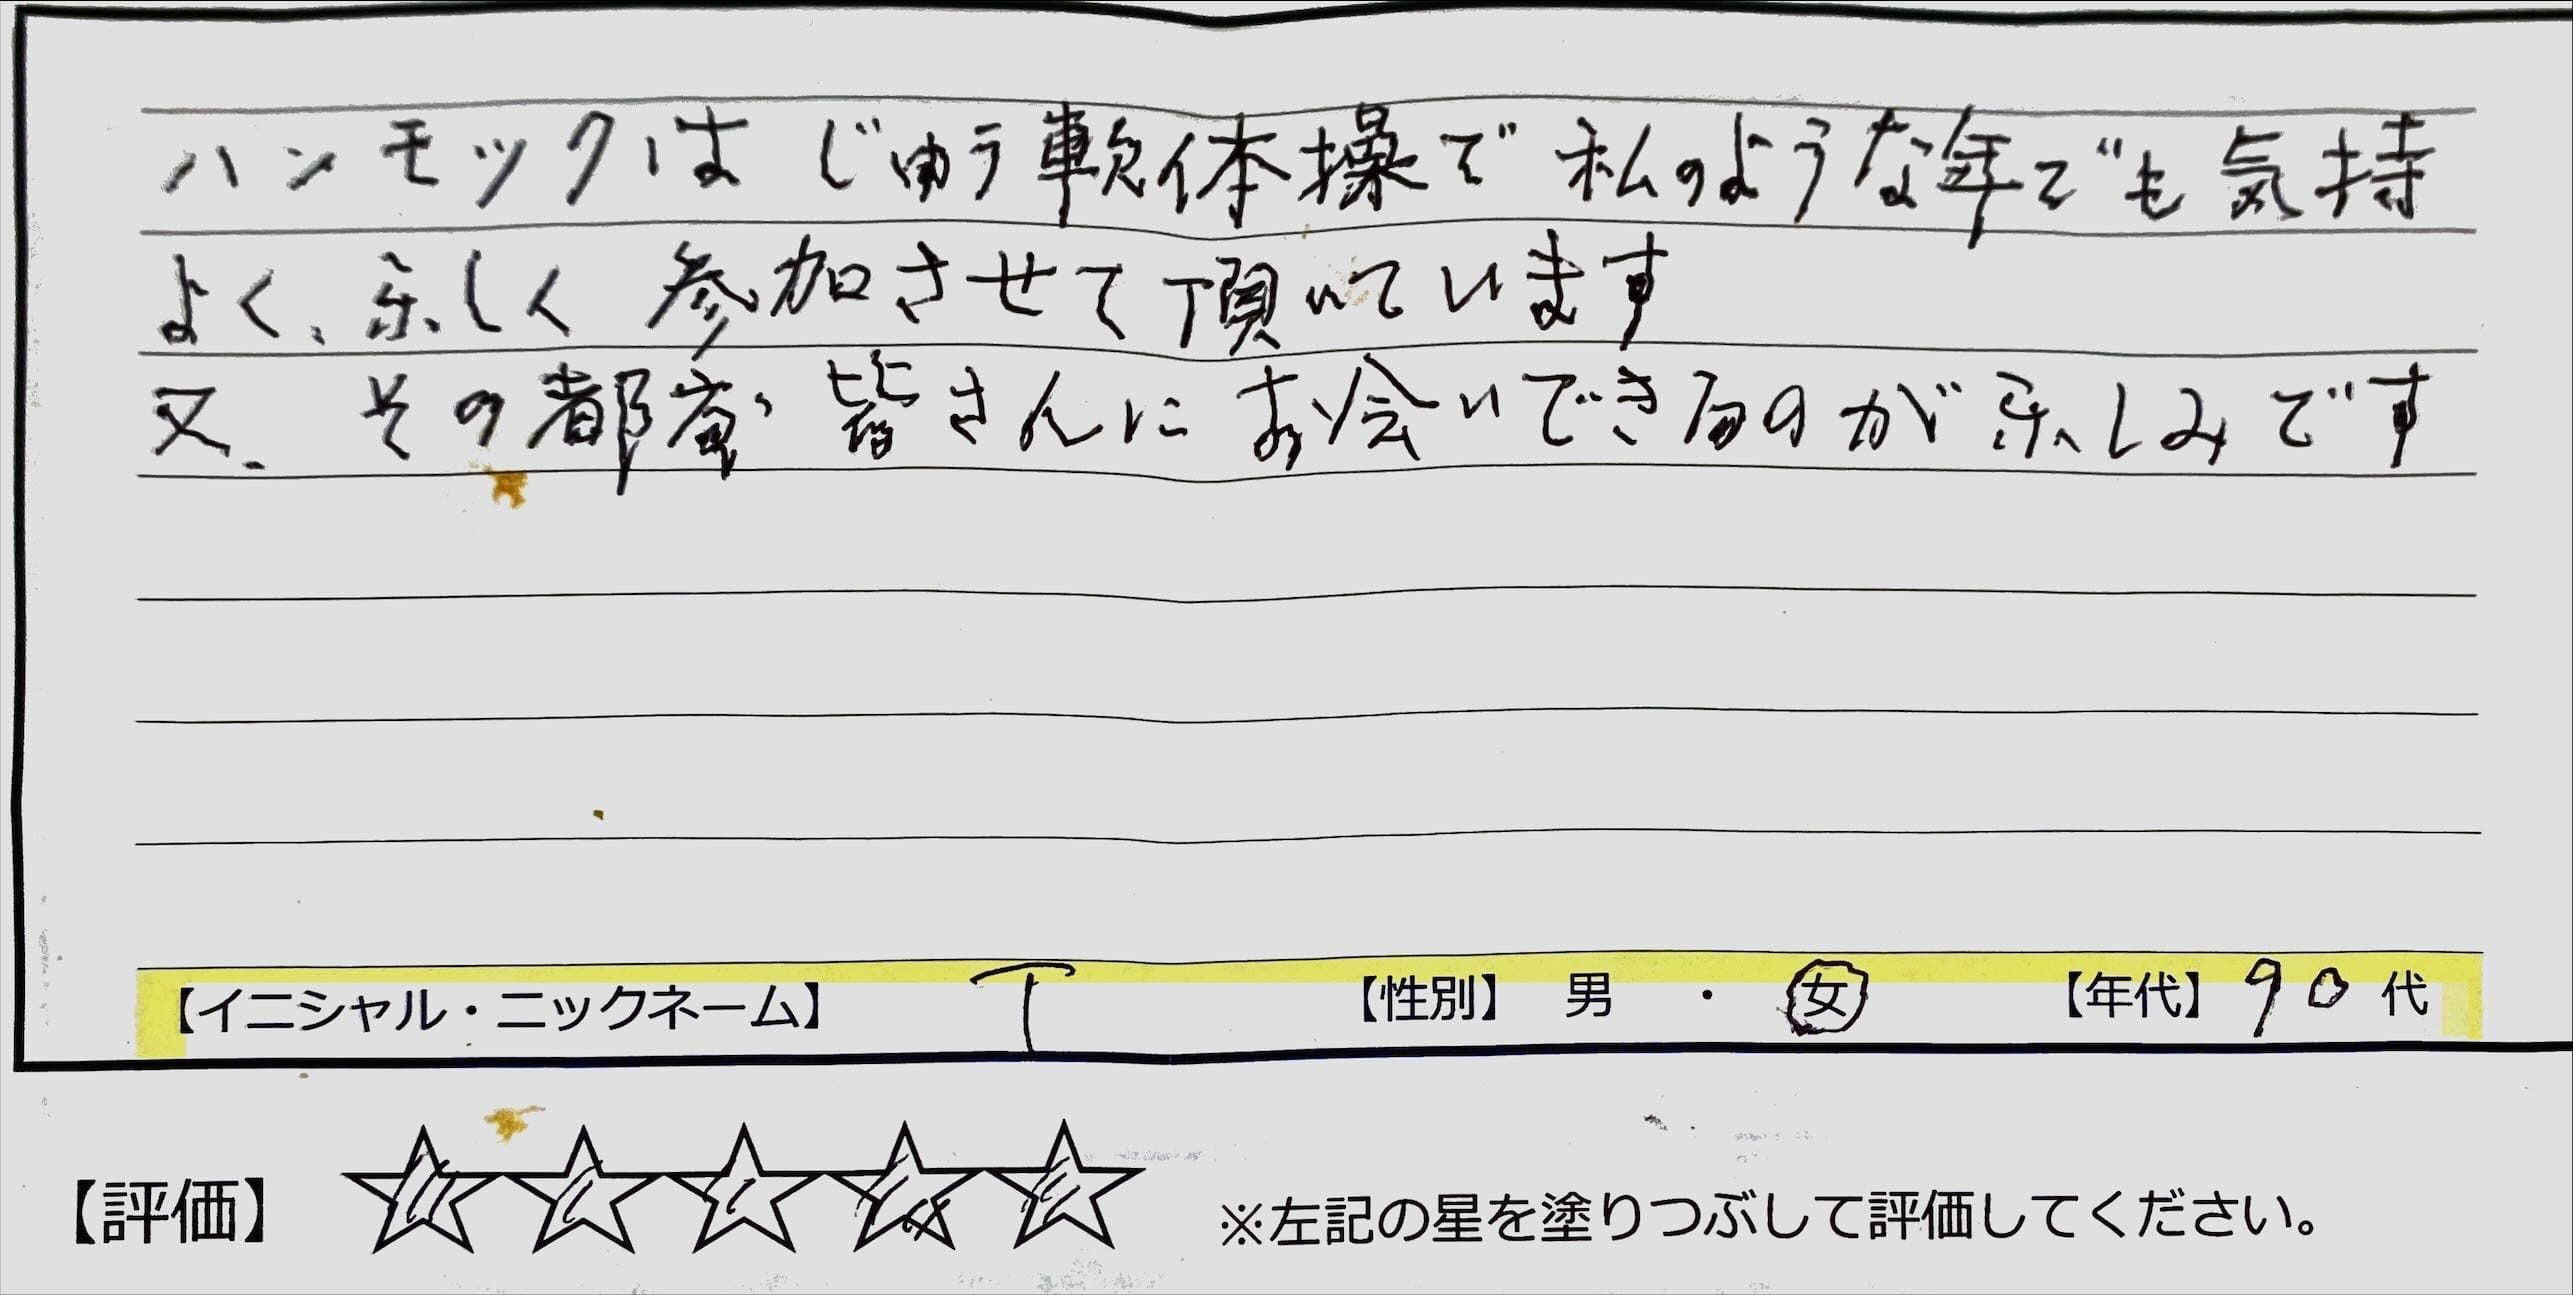 ハンモックは じゅう軟体操で 私のような年でも気持
よく、楽しく 参加させて頂いています
又、その都度、皆さんにお会いできるのが楽しみです
【イニシャル・ニックネーム】 T 【性別】 男 ・ 女 【年代】 90 代
【評価】 ☆☆☆☆☆ ※左記の星を塗りつぶして評価してください。